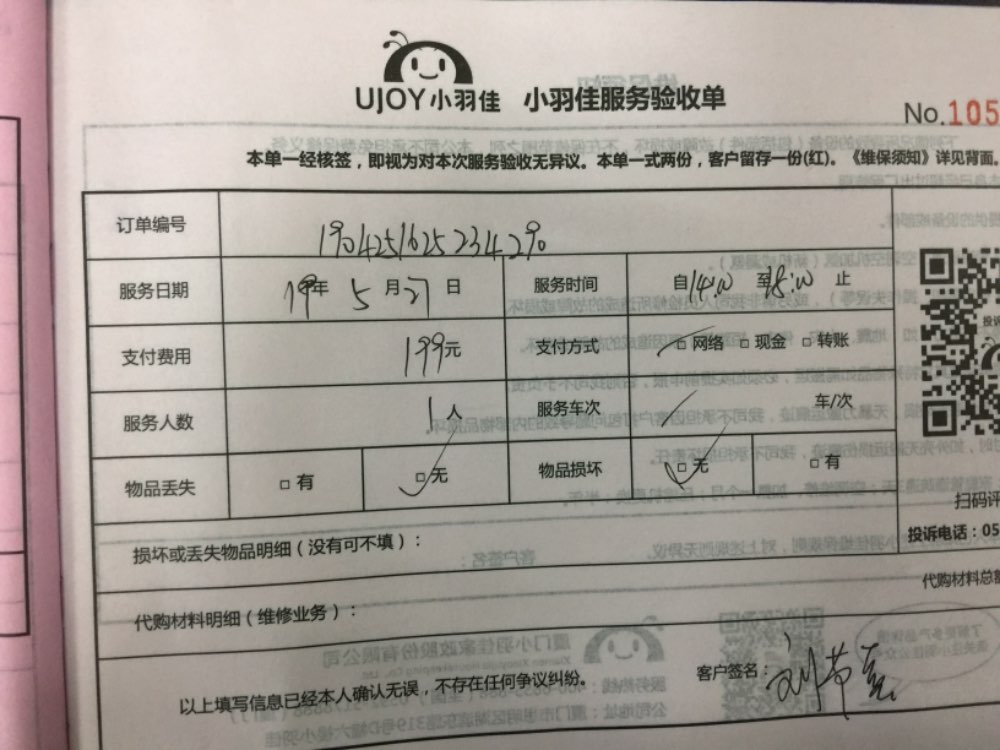 UJOY小羽佳 小羽佳服务验收单
No.105
本单一经核签，即视为对本次服务验收无异议。本单一式两份，客户留存一份(红)。《维保须知》详见背面。
订单编号 1904251625234290
服务日期 19年 5月27日 服务时间 自14:00 至18:00 止
支付费用 199元 支付方式 □网络 □现金 □转账
服务人数 1人 服务车次 / 车/次
物品丢失 □有 □无 物品损坏 □无 □有
扫码评
损坏或丢失物品明细（没有可不填）：
投诉电话：05
代购材料总额
代购材料明细（维修业务）：
以上填写信息已经本人确认无误，不存在任何争议纠纷。
客户签名：